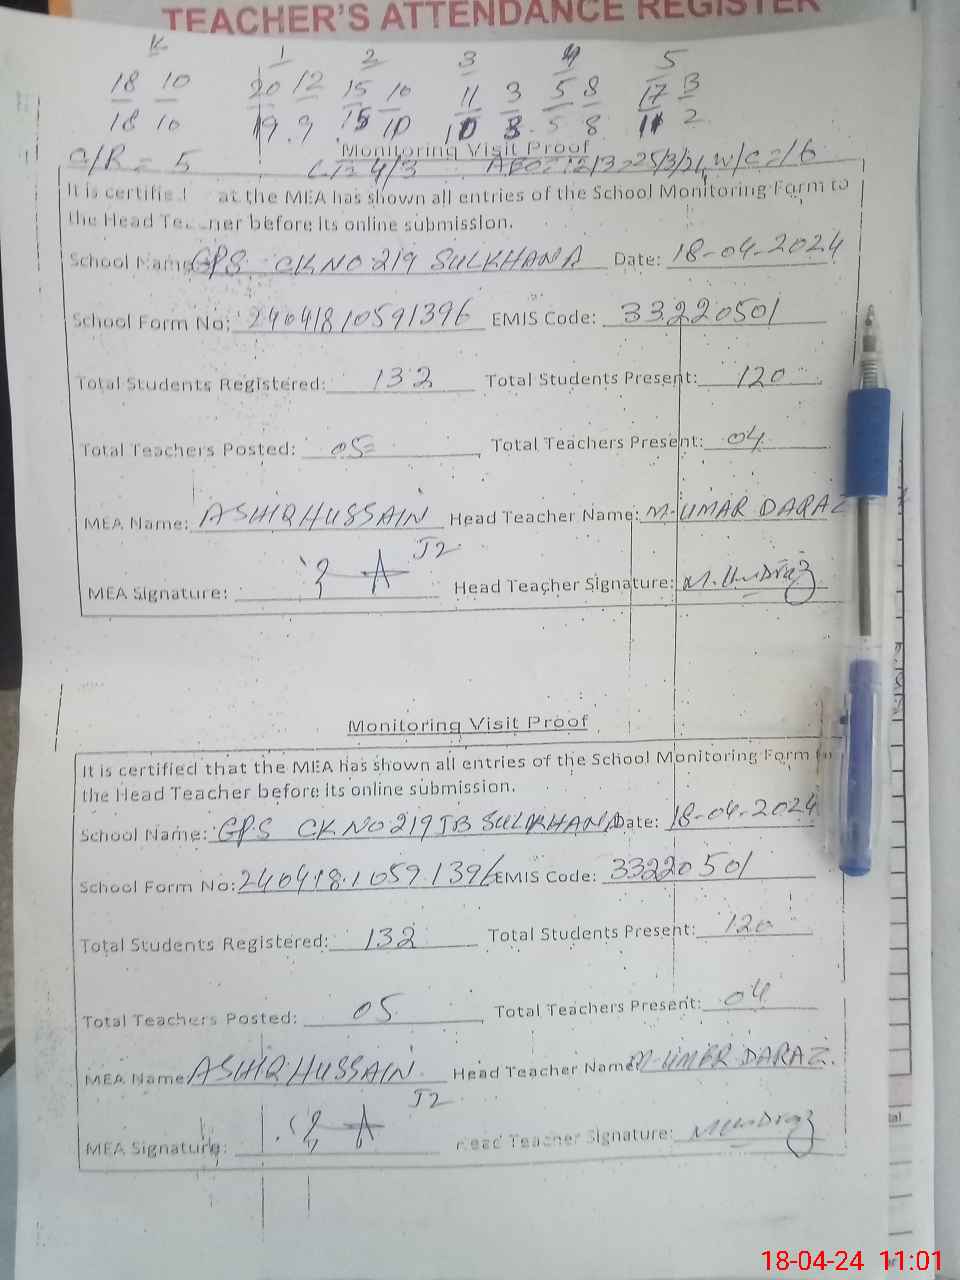 TEACHER'S ATTENDANCE REGISTER
K 1 2 3 4 5
18 10 20 12 15 10 11 3 5 8 17 3
18 10 19 9 15 10 10 3 5 8 11 2
Monitoring Visit Proof
C/R = 5 W/C = 16
It is certified at the MEA has shown all entries of the School Monitoring Form to
the Head Teacher before its online submission.
School Name GPS CK NO 219 SULKHANA Date: 18-04-2024
School Form No: 24041810591396 EMIS Code: 33220501
Total Students Registered: 132 Total Students Present: 120
Total Teachers Posted: 05 Total Teachers Present: 04
MEA Name: ASHIQ HUSSAIN Head Teacher Name: M. UMAR DARAZ
J2
MEA Signature: Head Teacher Signature:
Monitoring Visit Proof
It is certified that the MEA has shown all entries of the School Monitoring Form to
the Head Teacher before its online submission.
School Name: GPS CK NO 219 JB SULKHANA Date: 18-04-2024
School Form No: 24041810591396 EMIS Code: 33220501
Total Students Registered: 132 Total Students Present: 120
Total Teachers Posted: 05 Total Teachers Present: 04
MEA Name ASHIQ HUSSAIN Head Teacher Name M. UMAR DARAZ.
J2
MEA Signature: Head Teacher Signature:
18-04-24 11:01